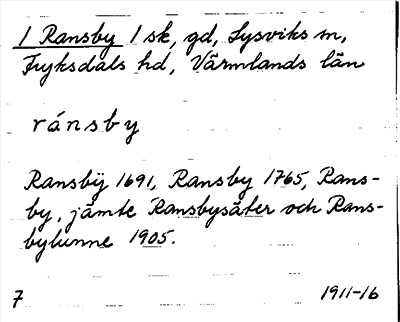 1 Ransby 1 sk, gd, Lysviks sn,
Fryksdals hd, Värmlands län
ránsby
Ransbÿ 1691, Ransby 1765, Rans-
by, jämte Ransbysäter och Rans-
bylunne 1905.
7 1911-16